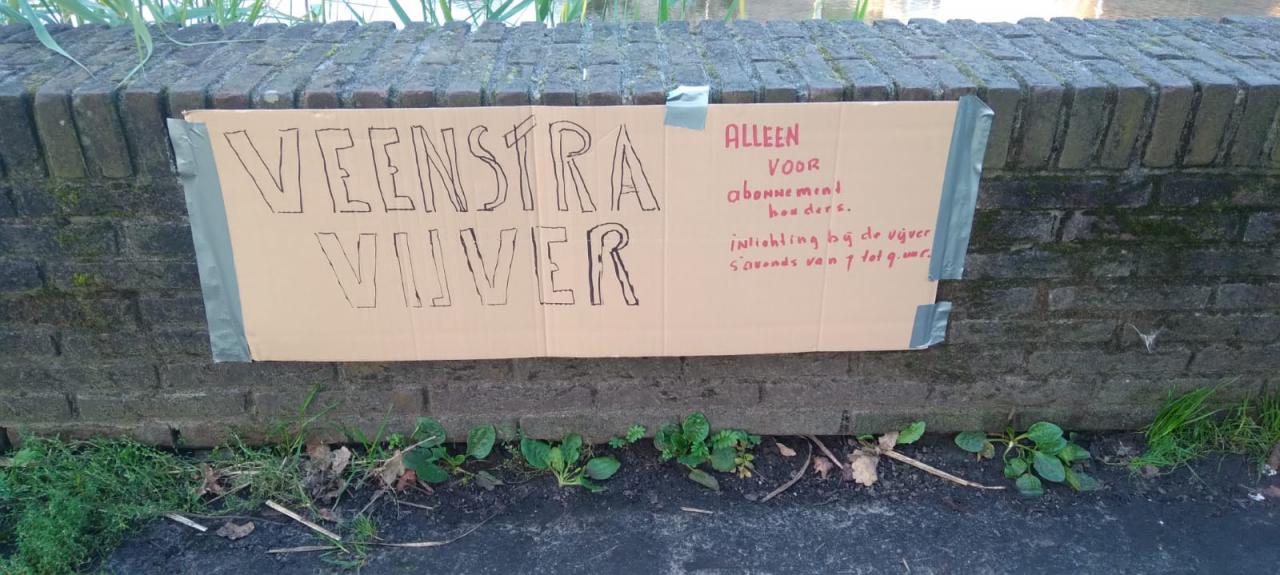 VEENSTRA
VIJVER
ALLEEN
VOOR
abonnement
houders.
inlichting bij de vijver
s'avonds van 7 tot 9.uur.